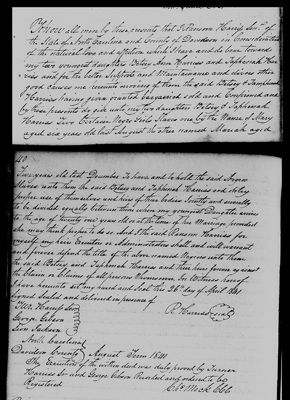 Know all men by these presents that I Ranson Harris Senr of
the State of North Carolina and County of Davidson in consideration
of the natural love and affection which I have and do bear toward
my two youngest daughters Betsy Ann Harris and Taphenah Har
ris and for the better Support and Maintainance and divers other
good causes me hereunto moving of them the said Betsy &
Harris having given granted bargained sold and Confirmed and
by these presents do give unto my two daughters Betsy & Taphenah
Harris Two Certain Negro Girls Slaves one by the Name of Mary
aged six years old last August the other named Mariah aged
110
Two years old last December To have and to hold the said Negro
Slaves unto them the said Betsey and Taphenah Harris and
proper use of themselves and heirs of their bodies and equally
to be divided equally between them when my youngest Daughter arrive
to the age of twenty one years old or at the time of her Marriage provided
she may think proper to do so. And I the said Ranson Harris for
myself my heirs Executors or Administrators shall and will warrant
and forever defend the title of the above named Negroes unto them
the said Betsey and Taphenah Harris and their heirs forever against
the Claim or Claims of all persons whomsoever. In Witness whereof
I have hereunto set my hand and Seal this 26th day of April 1841
Signed Sealed and delivered in presence of
Harris Senr
George Gibson
Jackson
R Harris (seal)
North Carolina
Davidson County August Term 1841
The Execution of the within deed was duly proved by Turner
Harris Sr and George Gibson Recorded and ordered to be
Registered
Chs Mock Clk